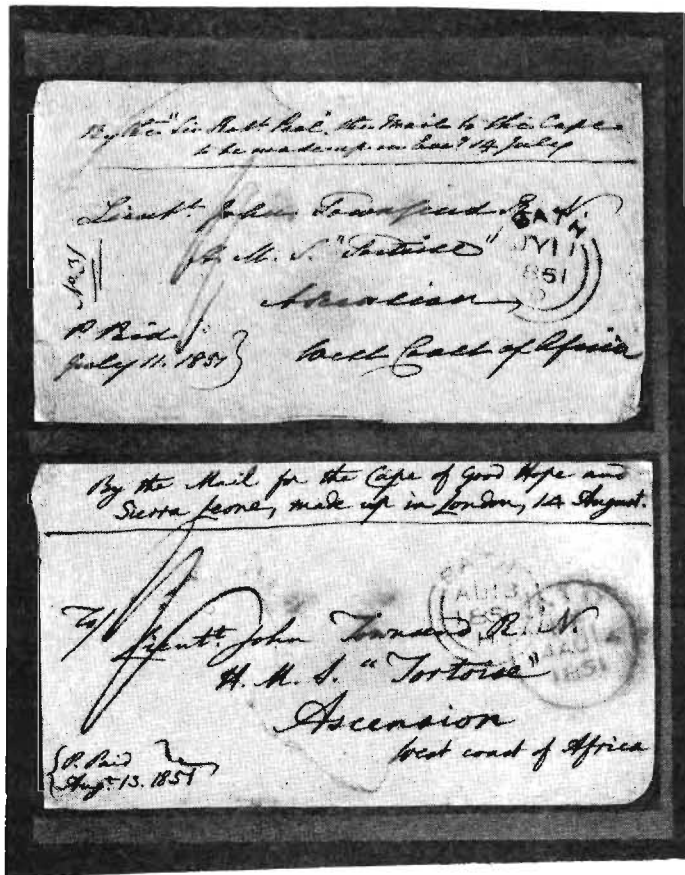 By the "Sir Robt Peel", the Mail to the Cape
to be made up in 14 July
Lieutt. John Townsend R. N.
H. M. S. "Tortoise"
Ascension
West Coast of Africa
No 31
P. Paid
July 11. 1851
BATH
JY 11
1851
By the Mail for the Cape of Good Hope and
Sierra Leone, made up in London, 14 August.
To/
Lieutt. John Townsend R. N.
H. M. S. "Tortoise"
Ascension
West coast of Africa
P. Paid
Augt. 13. 1851
BATH
AU 13
185
14 AU 14
1851